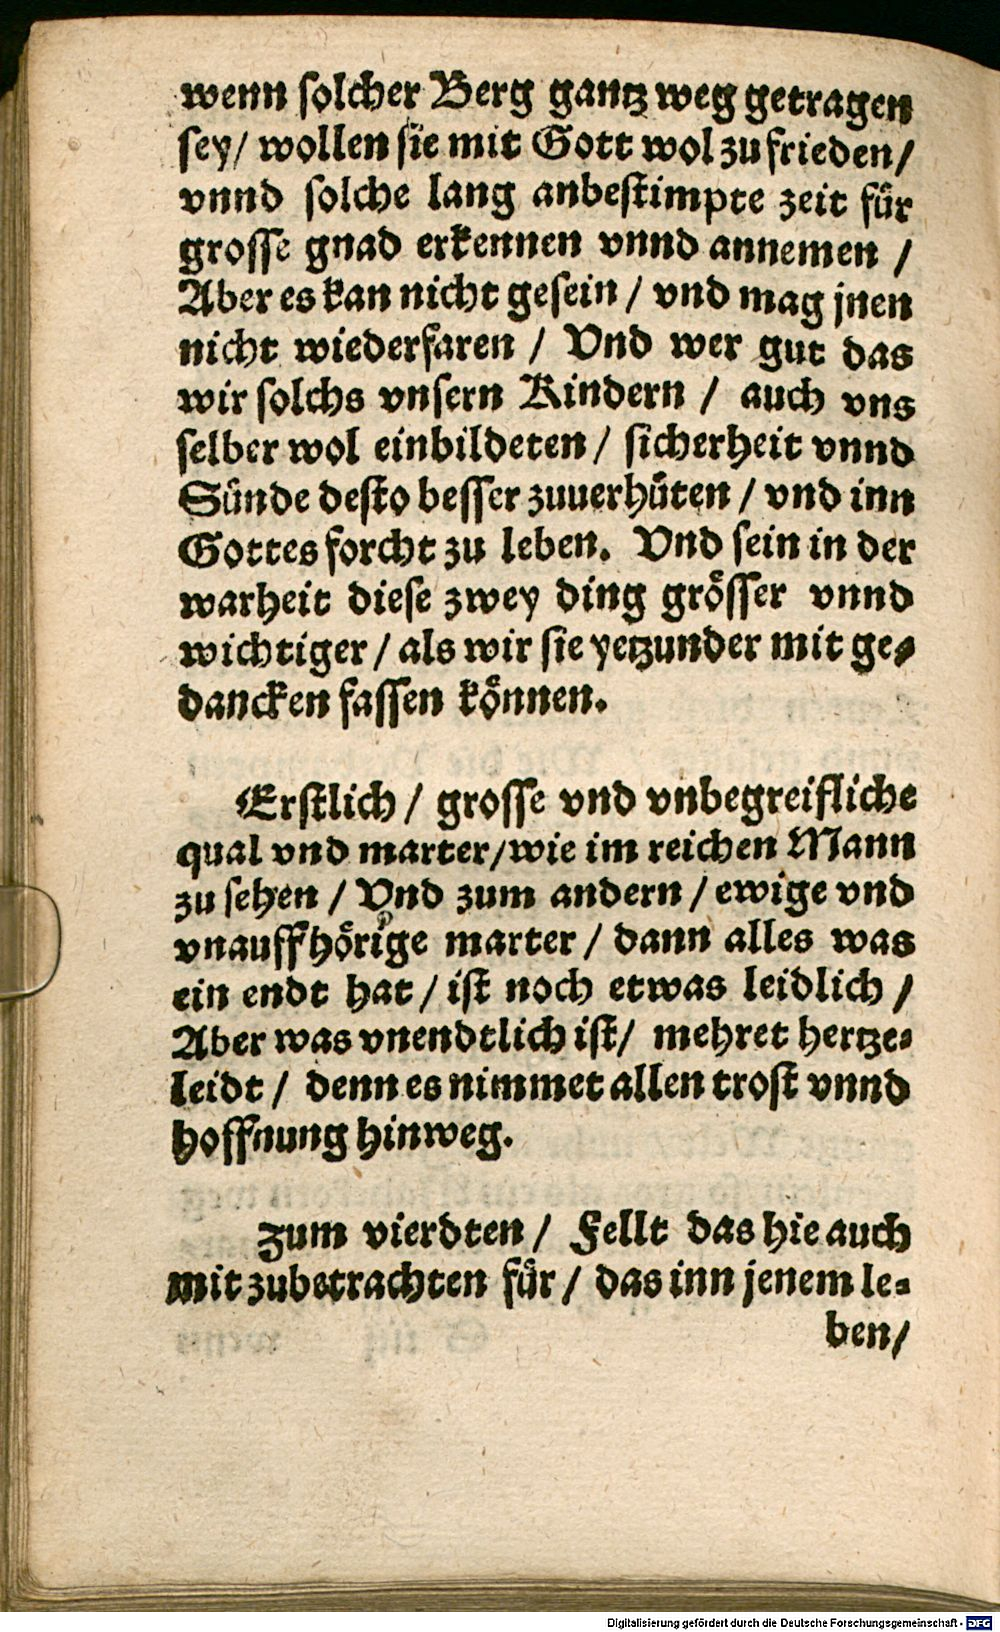 wenn solcher Berg gantz weg getragen
sey/ wollen sie mit Gott wol zu frieden/
vnnd solche lang anbestimpte zeit für
grosse gnad erkennen vnnd annemen /
Aber es kan nicht gesein / vnd mag jnen
nicht wiederfaren / Vnd wer gut das
wir solchs vnsern Kindern / auch vns
selber wol einbildeten / sicherheit vnnd
Sünde desto besser zuuerhüten / vnd inn
Gottes forcht zu leben. Vnd sein in der
warheit diese zwey ding grösser vnnd
wichtiger / als wir sie yetzunder mit ge-
dancken fassen können.
Erstlich / grosse vnd vnbegreifliche
qual vnd marter/wie im reichen Mann
zu sehen / Vnd zum andern / ewige vnd
vnauffhörige marter / dann alles was
ein endt hat / ist noch etwas leidlich /
Aber was vnendtlich ist/ mehret hertze-
leidt / denn es nimmet allen trost vnnd
hoffnung hinweg.
Zum vierdten / Fellt das hie auch
mit zubetrachten für / das inn jenem le-
ben/
Digitalisierung gefördert durch die Deutsche Forschungsgemeinschaft - DFG